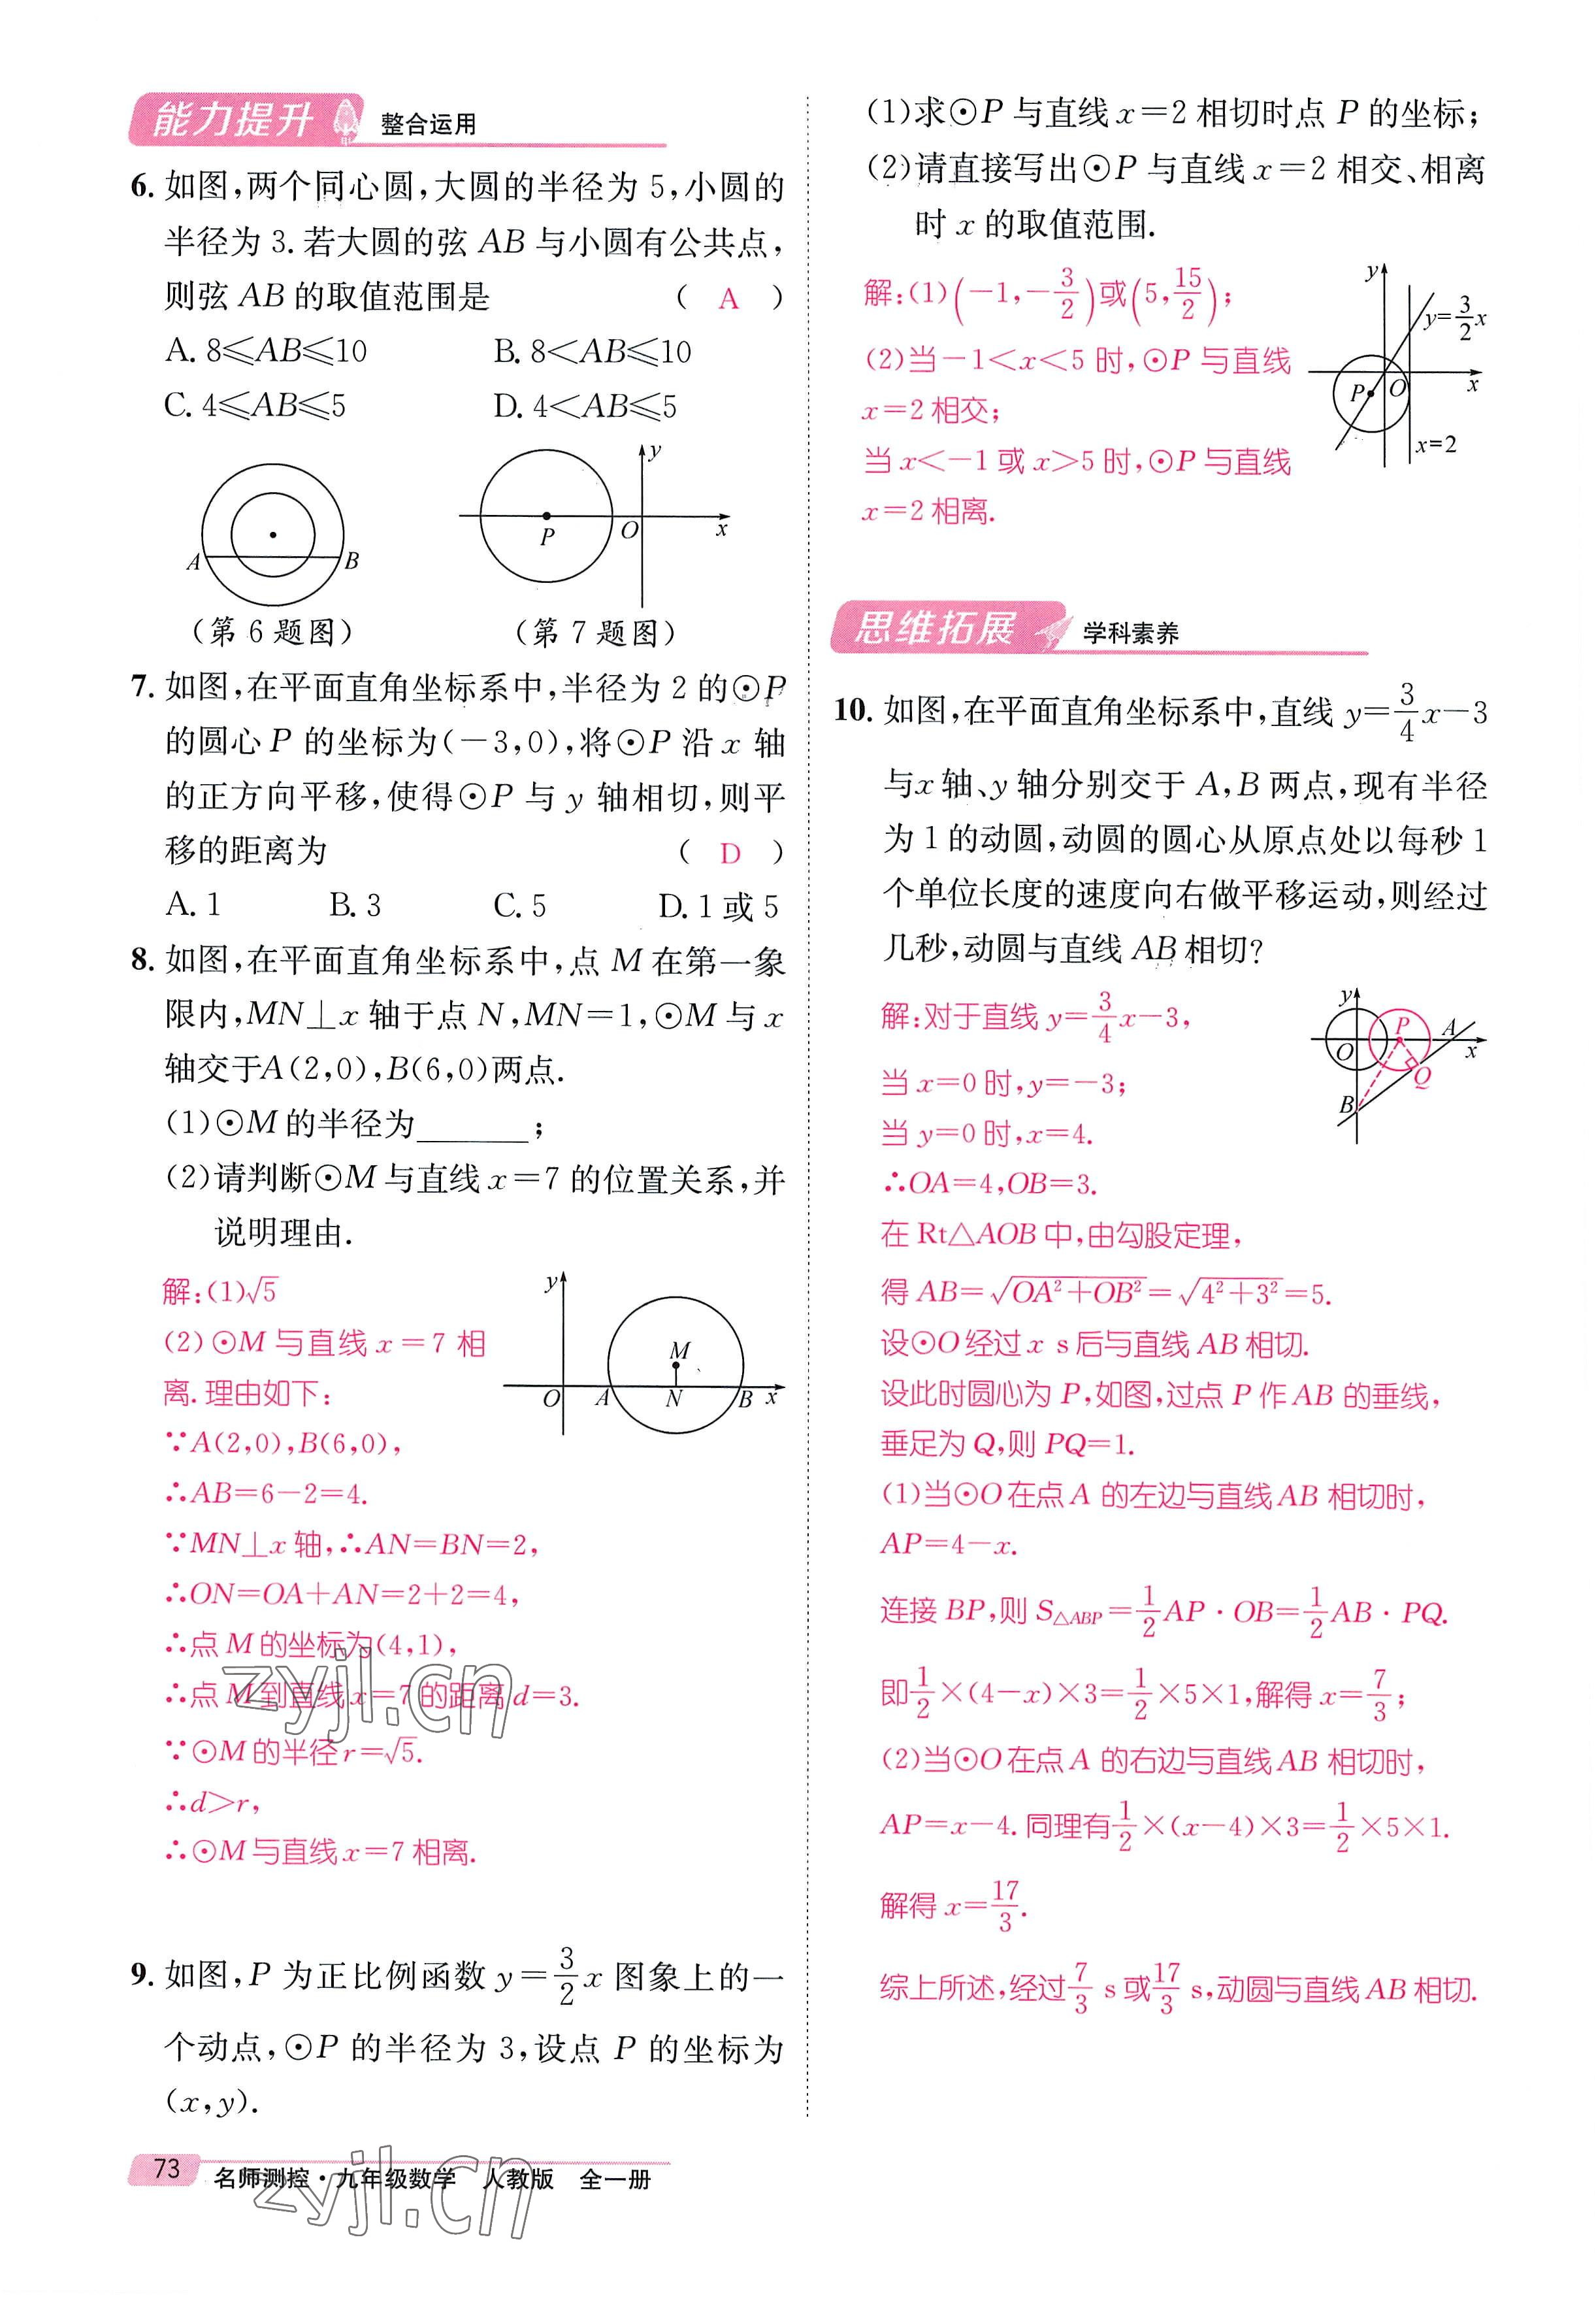 能力提升 整合运用
6. 如图,两个同心圆,大圆的半径为 5,小圆的
半径为 3. 若大圆的弦 AB 与小圆有公共点,
则弦 AB 的取值范围是 ( A )
A. 8≤AB≤10 B. 8<AB≤10
C. 4≤AB≤5 D. 4<AB≤5
A B
(第 6 题图)
y P O x
(第 7 题图)
7. 如图,在平面直角坐标系中,半径为 2 的⊙P
的圆心 P 的坐标为(-3,0),将⊙P 沿 x 轴
的正方向平移,使得⊙P 与 y 轴相切,则平
移的距离为 ( D )
A. 1 B. 3 C. 5 D. 1 或 5
8. 如图,在平面直角坐标系中,点 M 在第一象
限内,MN⊥x 轴于点 N,MN=1,⊙M 与 x
轴交于A(2,0),B(6,0)两点.
(1)⊙M 的半径为______;
(2)请判断⊙M 与直线 x=7 的位置关系,并
说明理由.
解:(1)√5
(2)⊙M 与直线 x=7 相
离. 理由如下:
∵A(2,0),B(6,0),
∴AB=6-2=4.
∵MN⊥x 轴,∴AN=BN=2,
∴ON=OA+AN=2+2=4,
∴点 M 的坐标为(4,1),
∴点 M 到直线 x=7 的距离 d=3.
∵⊙M 的半径 r=√5.
∴d>r,
∴⊙M 与直线 x=7 相离.
y M O A N B x
9. 如图,P 为正比例函数 y=3/2 x 图象上的一
个动点,⊙P 的半径为 3,设点 P 的坐标为
(x,y).
(1)求⊙P 与直线 x=2 相切时点 P 的坐标;
(2)请直接写出⊙P 与直线 x=2 相交、相离
时 x 的取值范围.
解:(1)(-1,-3/2)或(5,15/2);
(2)当-1<x<5 时,⊙P 与直线
x=2 相交;
当 x<-1 或 x>5 时,⊙P 与直线
x=2 相离.
y y=3/2 x P O x x=2
思维拓展 学科素养
10. 如图,在平面直角坐标系中,直线 y=3/4 x-3
与x 轴、y 轴分别交于 A,B 两点,现有半径
为 1 的动圆,动圆的圆心从原点处以每秒 1
个单位长度的速度向右做平移运动,则经过
几秒,动圆与直线 AB 相切?
解:对于直线 y=3/4 x-3,
当 x=0 时,y=-3;
当 y=0 时,x=4.
∴OA=4,OB=3.
在 Rt△AOB 中,由勾股定理,
得 AB=√(OA²+OB²)=√(4²+3²)=5.
设⊙O 经过 x s后与直线 AB 相切.
设此时圆心为 P,如图,过点 P 作 AB 的垂线,
垂足为 Q,则 PQ=1.
(1)当⊙O 在点 A 的左边与直线 AB 相切时,
AP=4-x.
连接 BP,则 S△ABP=1/2 AP·OB=1/2 AB·PQ.
即1/2×(4-x)×3=1/2×5×1,解得 x=7/3;
(2)当⊙O 在点 A 的右边与直线 AB 相切时,
AP=x-4. 同理有1/2×(x-4)×3=1/2×5×1.
解得 x=17/3.
综上所述,经过7/3 s 或17/3 s,动圆与直线 AB 相切.
y P A O x Q B
zyjl.cn
73 名师测控·九年级数学 人教版 全一册
zyjl.cn